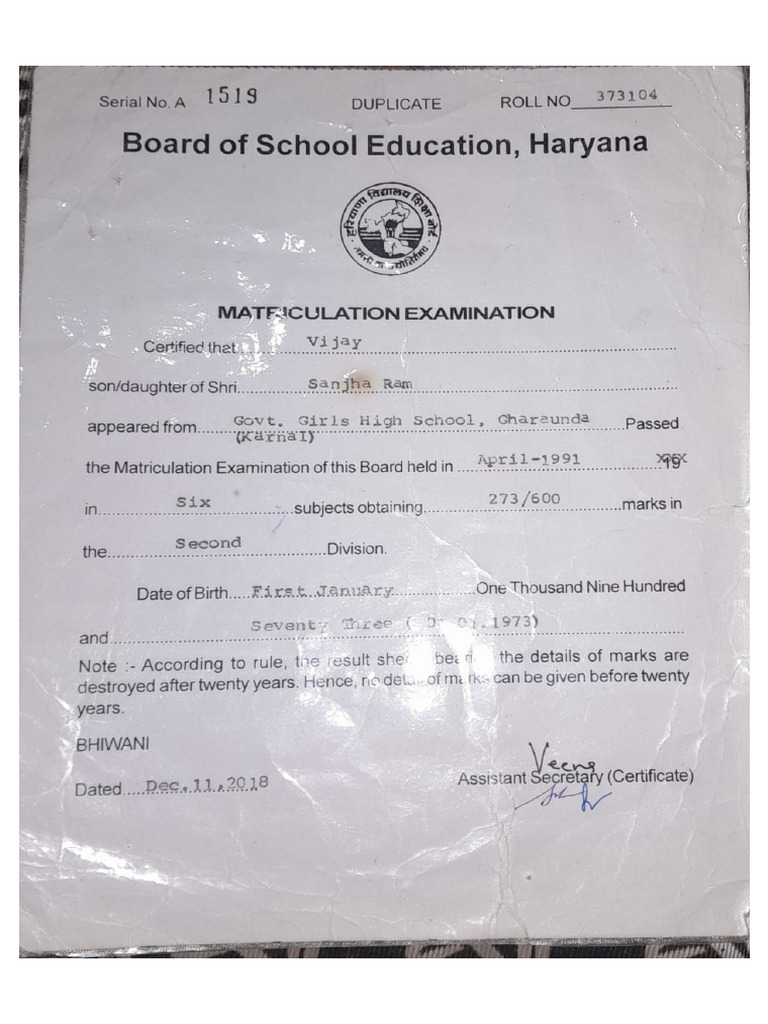 Serial No. A 1519 DUPLICATE ROLL NO 373104
Board of School Education, Haryana
हरियाणा विद्यालय शिक्षा बोर्ड
MATRICULATION EXAMINATION
Certified that Vijay
son/daughter of Shri. Sanjha Ram
appeared from Govt. Girls High School, Gharaunda Passed
(Karnal)
the Matriculation Examination of this Board held in April-1991 19
in Six subjects obtaining 273/600 marks in
the Second Division.
Date of Birth First January One Thousand Nine Hundred
and Seventy Three (01.01.1973)
Note :- According to rule, the result sheet bearing the details of marks are
destroyed after twenty years. Hence, no detail of marks can be given before twenty
years.
BHIWANI
Veena
Dated Dec.11,2018 Assistant Secretary (Certificate)